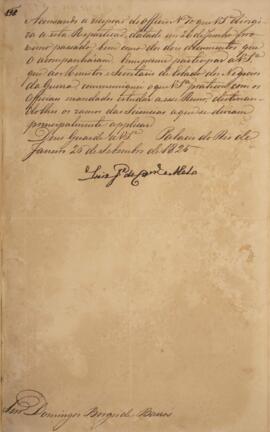 Accusando a recepção do officio Nº 70 que V.Sª dirigio
a esta Repartição, datado em 26 de Junho pro-
ximo passado, bem como dos documentos que
o acompanharão: Cumpre-me participar a V.Sª
que ao Ministro e Secretario de Estado dos Negocios
da Guerra communiquei o que V.Sª praticou com os
Officiaes mandados estudar a esse Reino, destinan-
do-lhes os ramos das Sciencias a que se devião
principalmente applicar.
Deos Guarde a V.Sª Palacio do Rio de
Janeiro 25 de Setembro de 1825
Luis Jº de Carvº e Mello
Senr. Domingos Borges de Barros